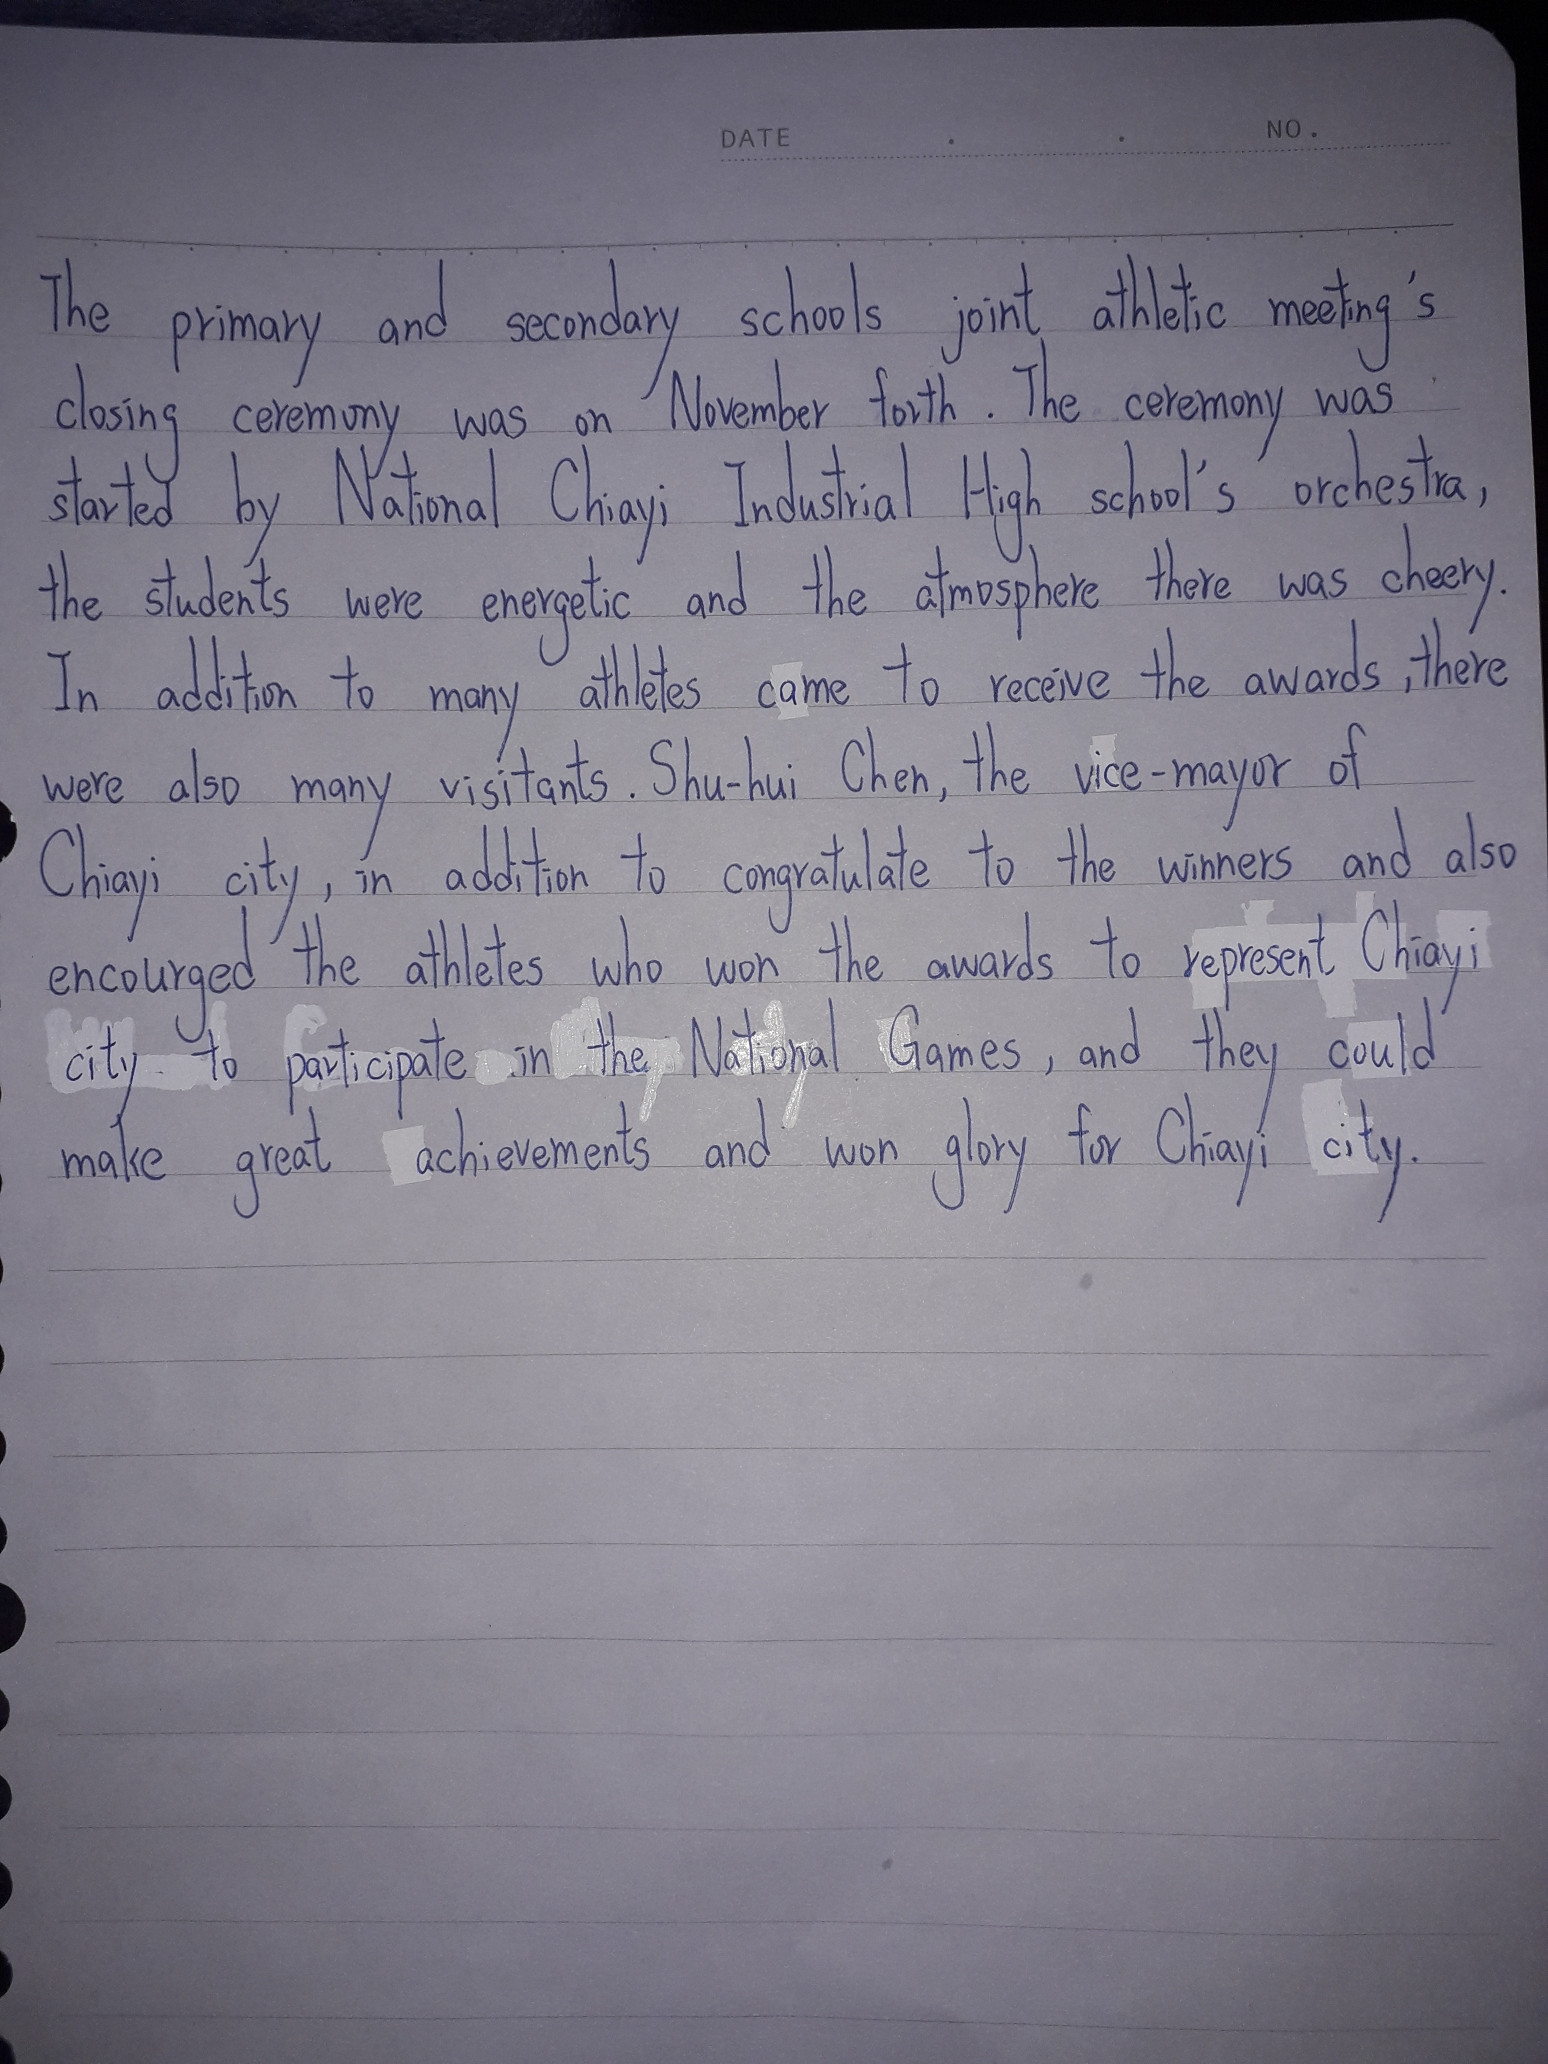 DATE . . NO.
The primary and secondary schools joint athletic meeting's
closing ceremony was on November forth. The ceremony was
started by National Chiayi Industrial High school's orchestra,
the students were energetic and the atmosphere there was cheery.
In addition to many athletes came to receive the awards, there
were also many visitants. Shu-hui Chen, the vice-mayor of
Chiayi city, in addition to congratulate to the winners and also
encourged the athletes who won the awards to represent Chiayi
city to participate in the National Games, and they could
make great achievements and won glory for Chiayi city.